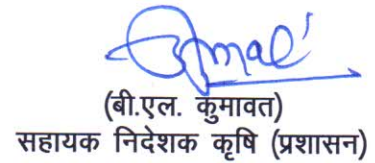 (बी.एल. कुमावत)
सहायक निदेशक कृषि (प्रशासन)